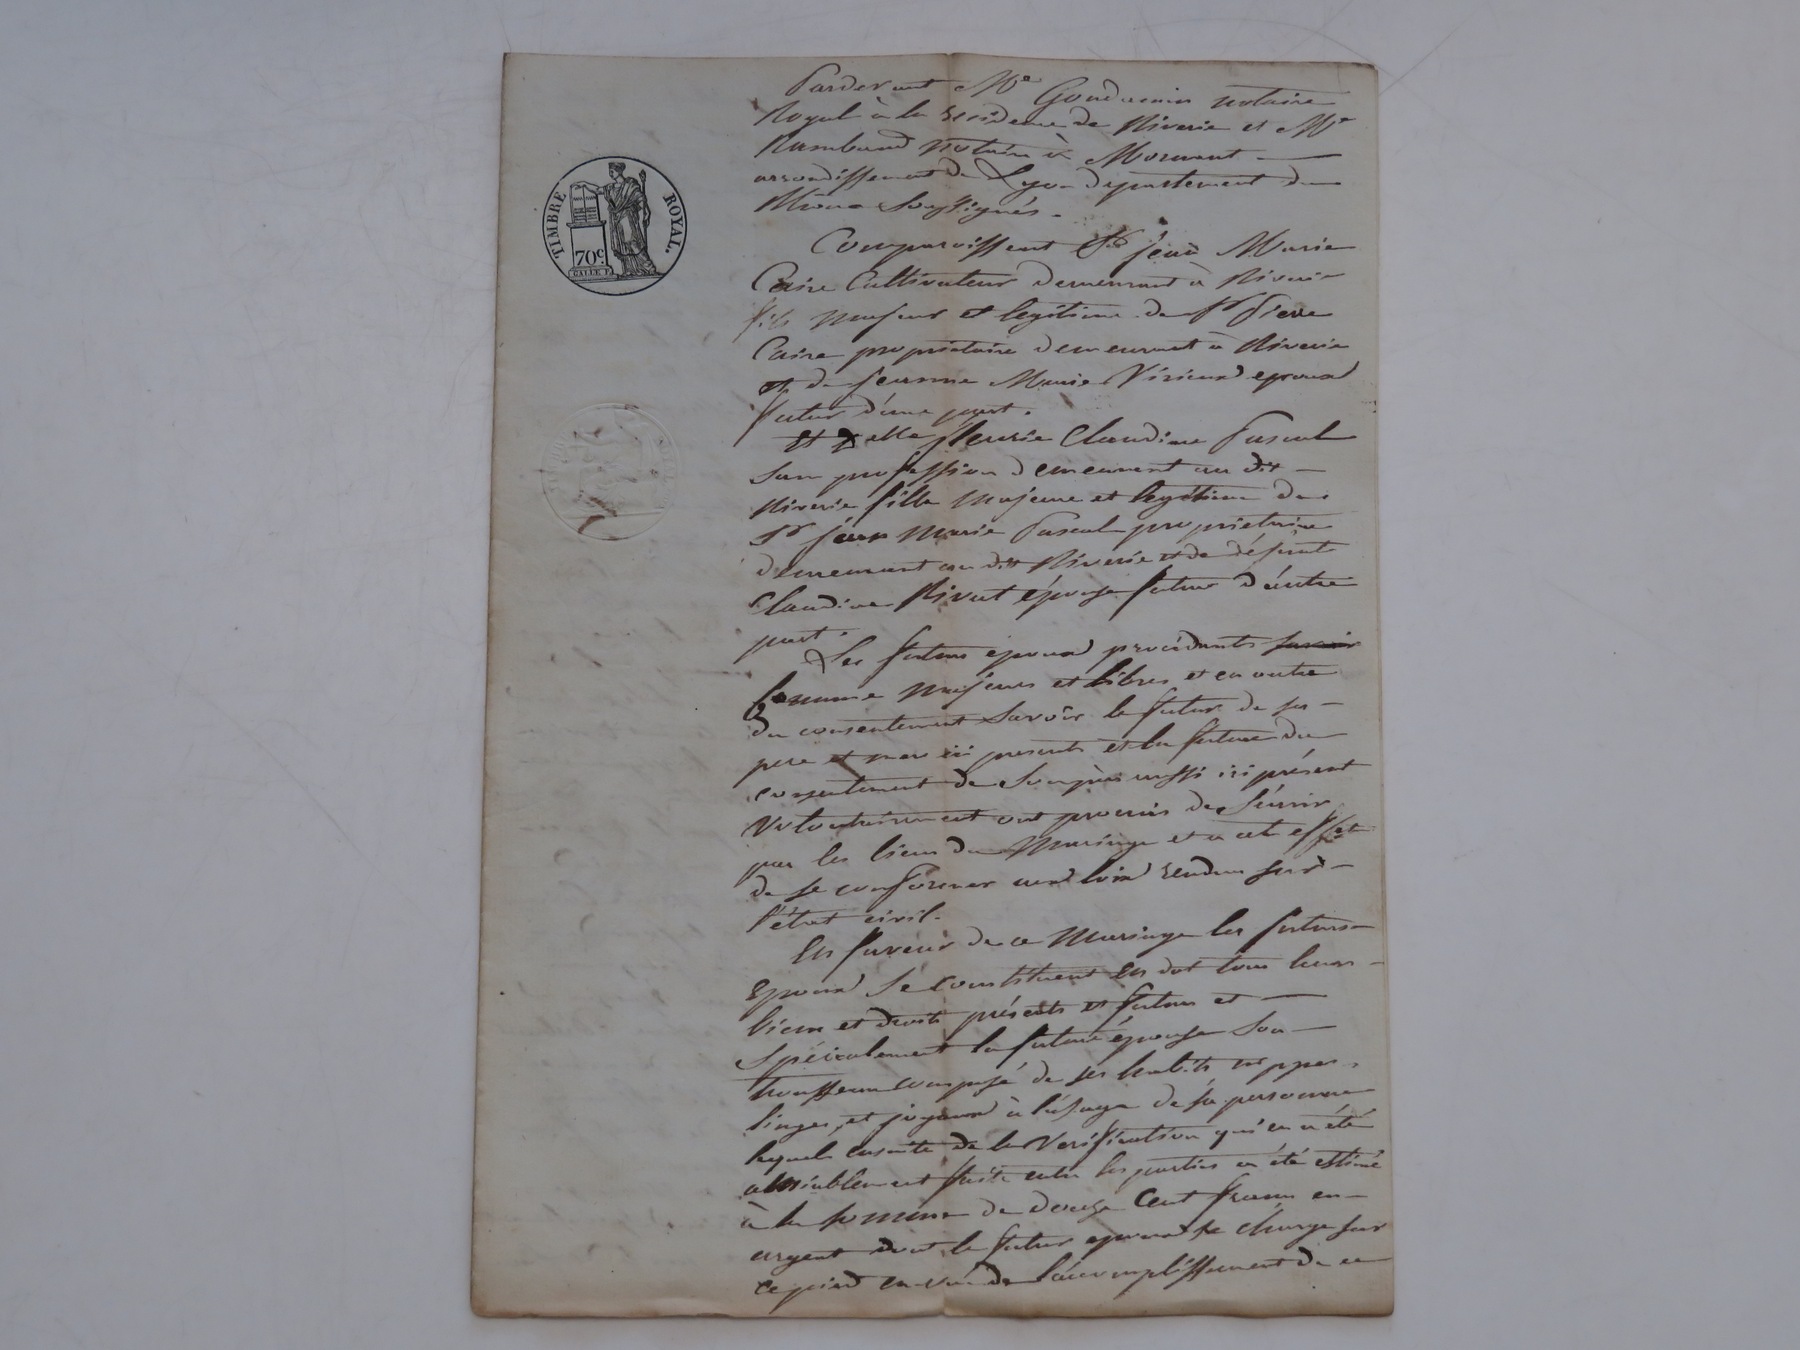 Pardevant Me Goudunin notaire
Royal à la residence de Riverie et Me
Rambaud notaire à Mornant
arrondissement de Lyon departement du
Rhone Soussignés.
TIMBRE ROYAL.
70c.
Comparoissent Sr jean Marie
Caire Cultivateur demeurant à Riverie
fils majeur et legitime de Sr Pierre
Caire propriétaire demeurant à Riverie
et de jeanne Marie Viricel epoux
futur d'une part.
Et Delle fleurie Claudine Pascal
San profession demeurant au dit
Riverie fille majeure et legitime de
Sr jean Marie Pascal propriétaire
demeurant au dit Riverie et de défunte
Claudine Rivat épouse future d'autre
part.
Les futurs epoux procédants savoir
Comme majeurs et libres et en outre
du consentement Savoir le futur de ses
pere et mere ici presents et la future du
consentement de Son père aussi ici présent
Volontairement ont promis de S'unir
par les liens du Mariage et a cet effet
de se conformer aux loix rendues sur
l'état civil.
En faveur de ce Mariage les futurs
Epoux Se constituent En dot tous leurs
biens et droits présents et futurs et
Spécialement la future épouse Son
trousseau composé de ses habits nippes
linges, et joyaux à l'usage de sa personne
lequel ensuite de la Verification qui en a été
amiablement faite entre les parties a été estimé
à la somme de douze Cent francs en
argent dont le futur epoux se charge sur
ce pied en vue de l'accomplissement de ce